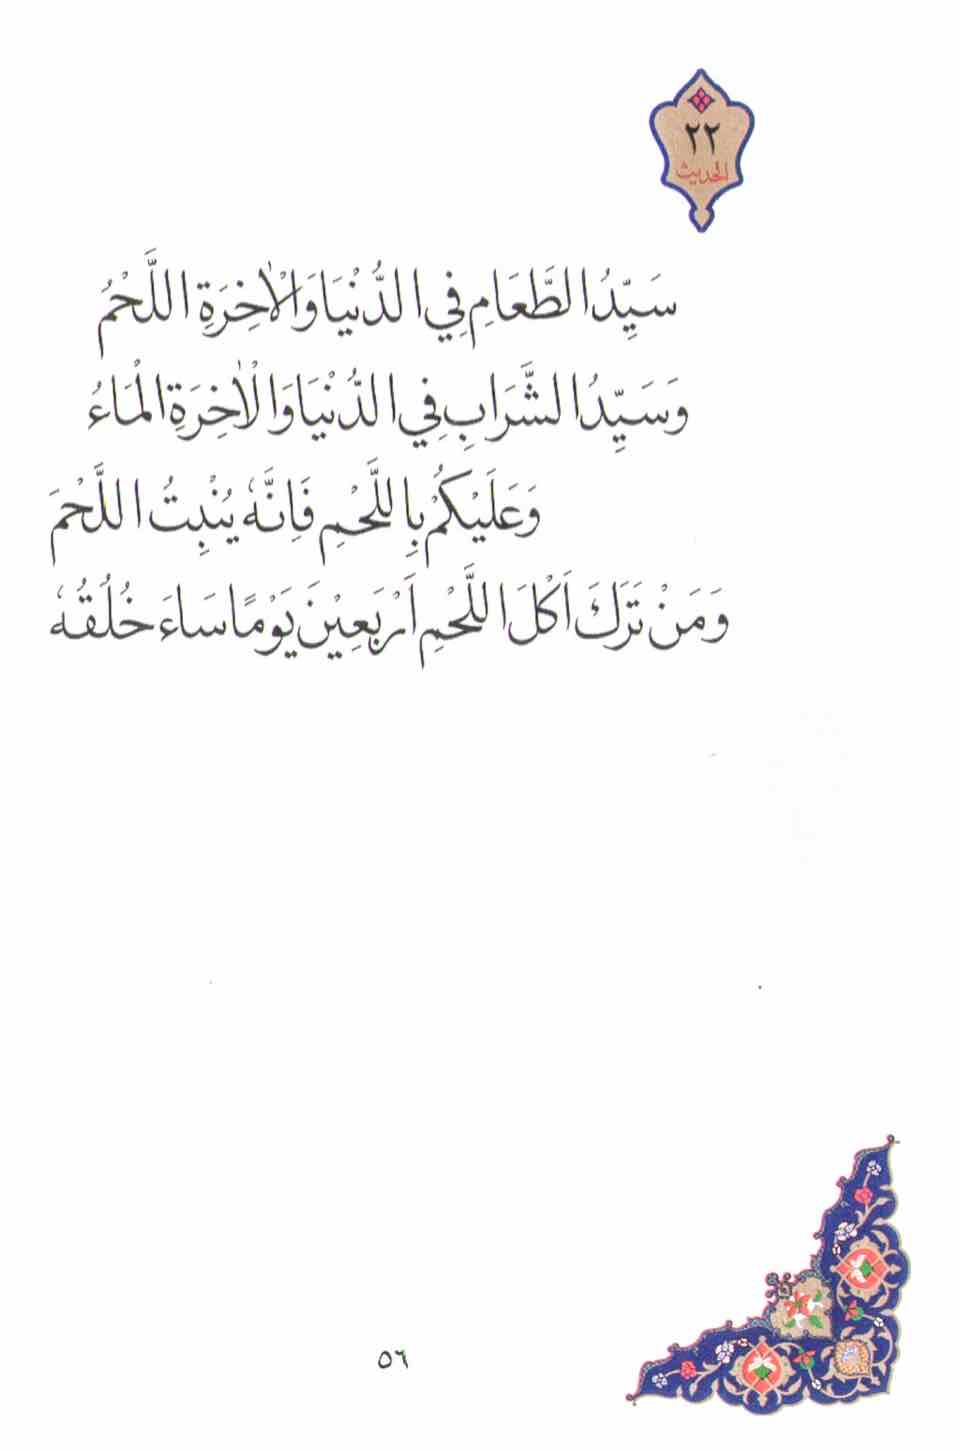 ٢٢
الحديث
سَيِّدُ الطَّعَامِ فِي الدُّنْيَا وَالْاٰخِرَةِ اللَّحْمُ
وَسَيِّدُ الشَّرَابِ فِي الدُّنْيَا وَالْاٰخِرَةِ الْمَاءُ
وَعَلَيْكُمْ بِاللَّحْمِ فَاِنَّهٗ يُنْبِتُ اللَّحْمَ
وَمَنْ تَرَكَ اَكْلَ اللَّحْمِ اَرْبَعِيْنَ يَوْمًا سَاءَ خُلُقُهٗ
٥٦